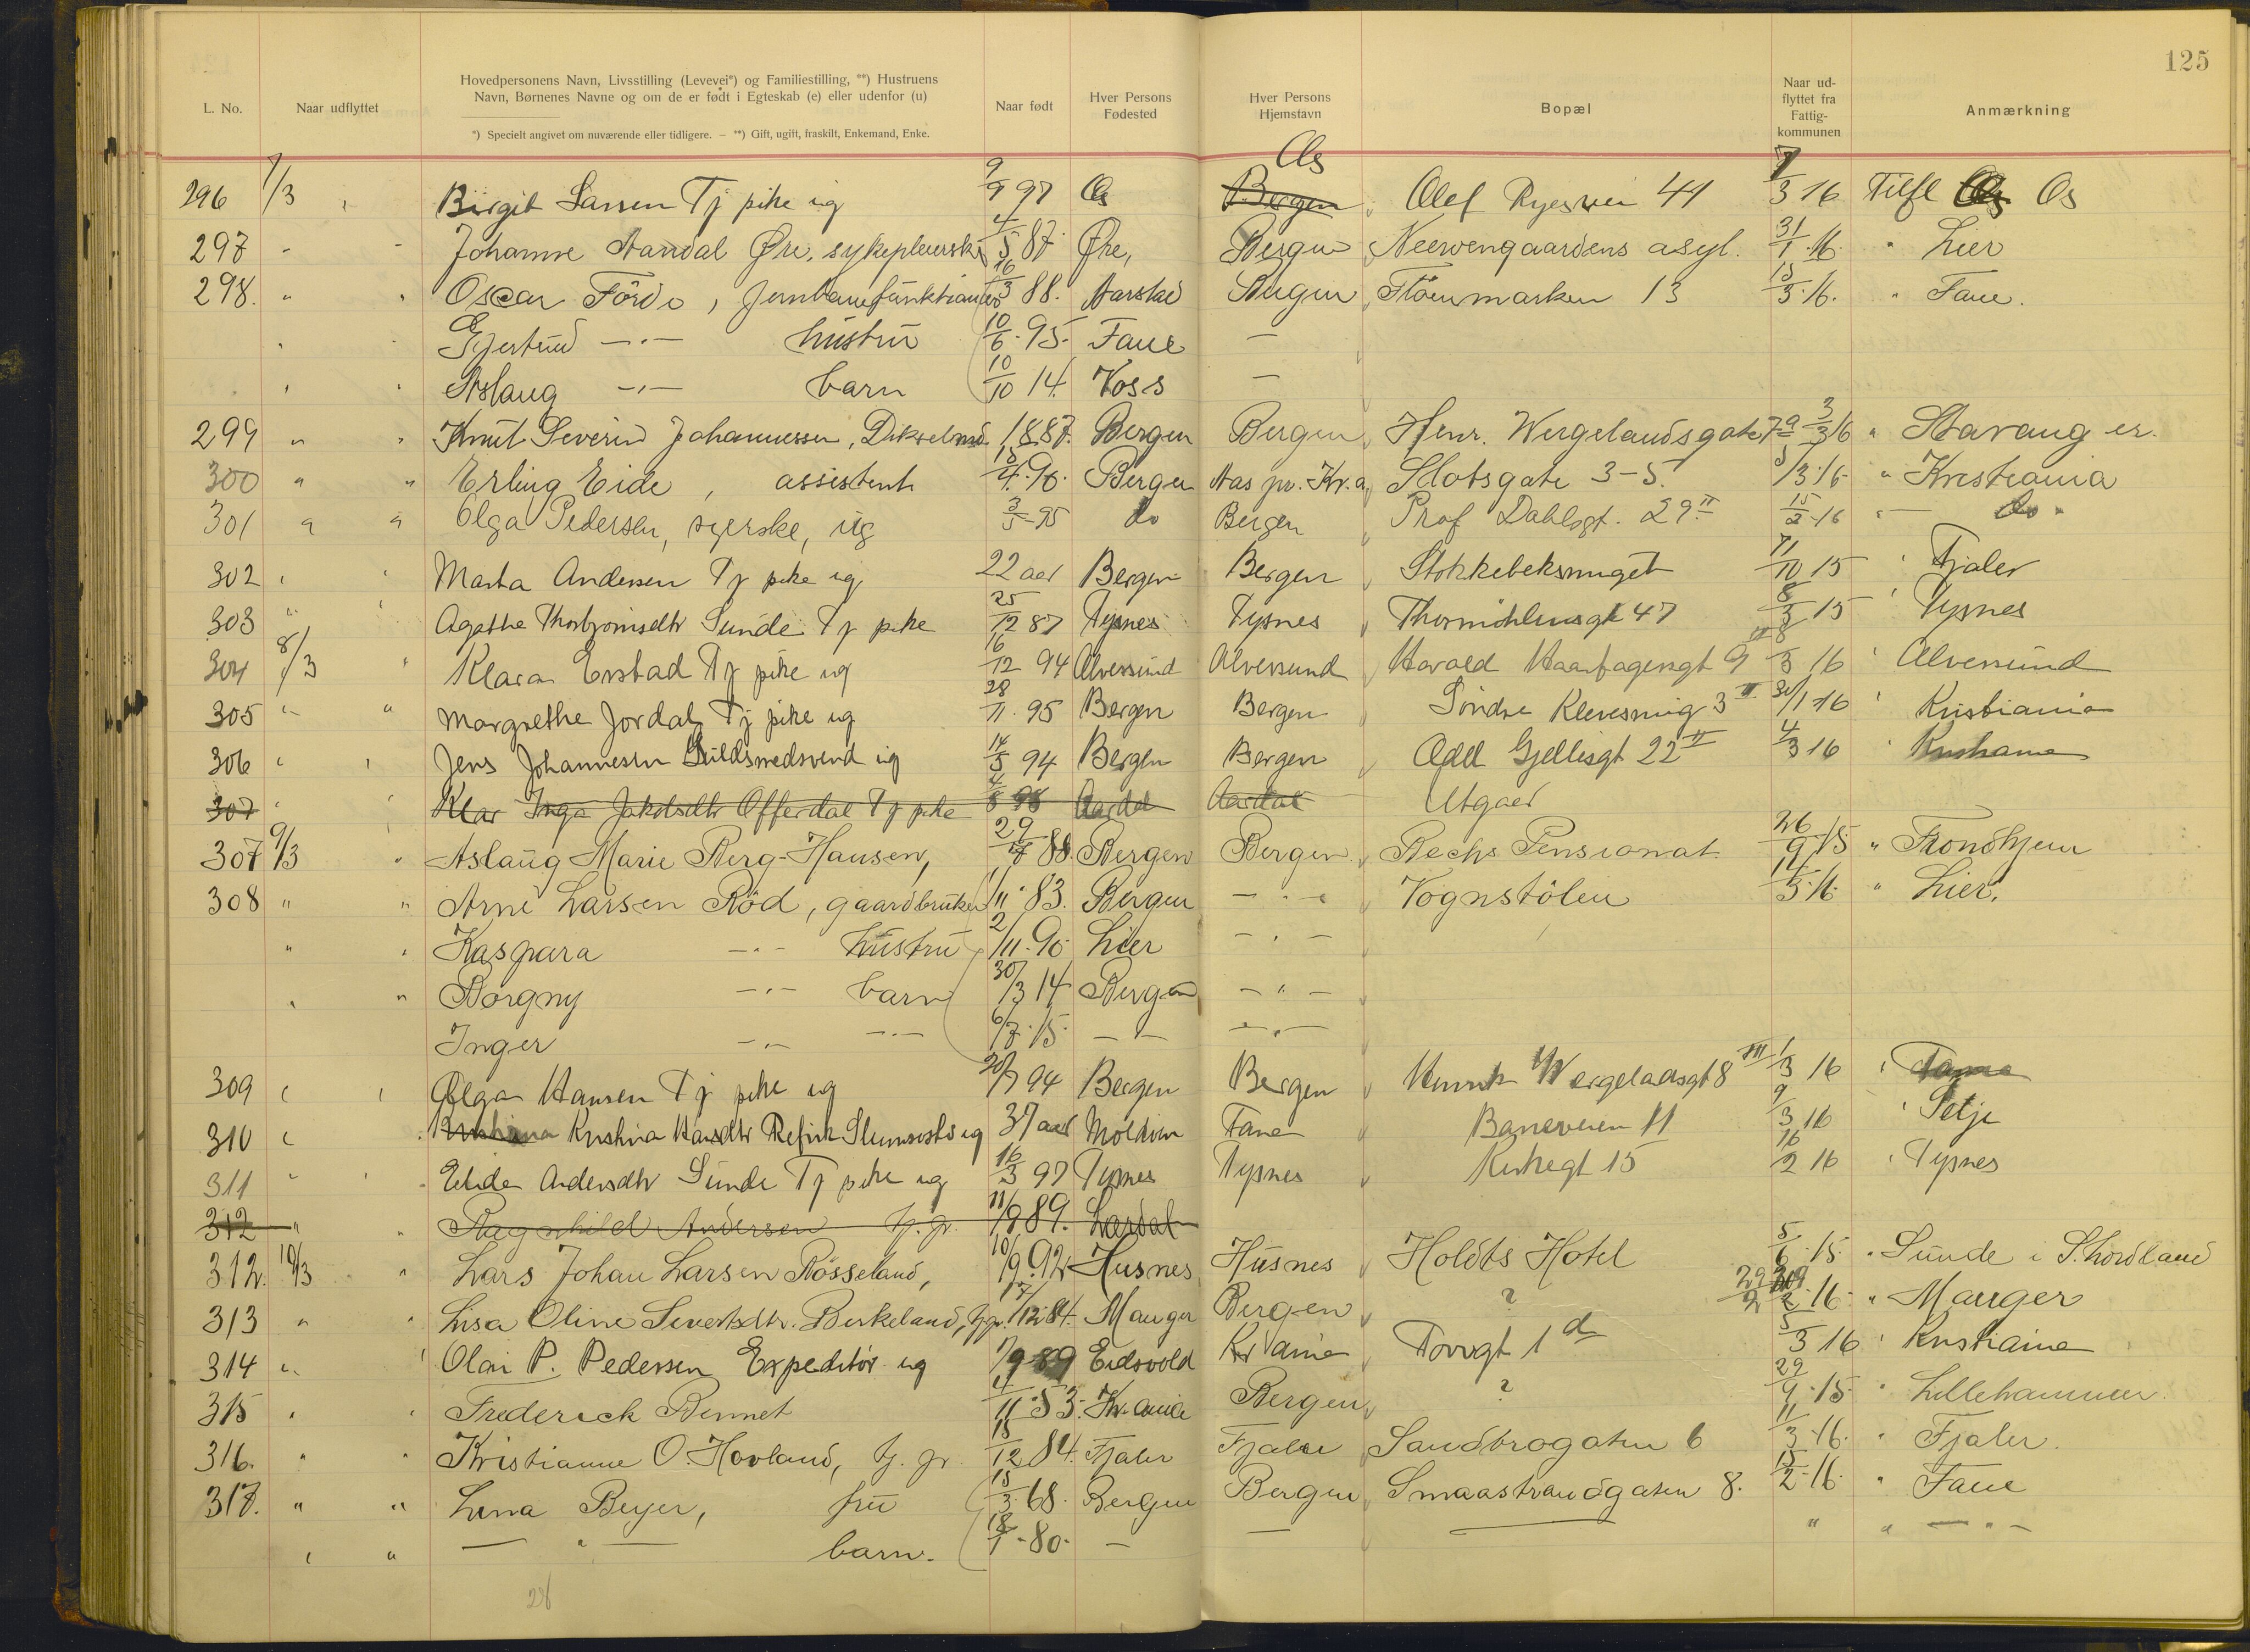 125
L. No. Naar udflyttet Hovedpersonens Navn, Livsstilling (Levevei*) og Familiestilling, **) Hustruens Navn, Børnenes Navne og om de er født i Egteskab (e) eller udenfor (u) Naar født Hver Persons Fødested Hver Persons Hjemstavn Bopæl Naar ud-flyttet fra Fattig-kommunen Anmærkning
*) Specielt angivet om nuværende eller tidligere. — **) Gift, ugift, fraskilt, Enkemand, Enke.
Os
296 7/3 " Birgit Larsen Tj pike ug 9/9 97 Os Bergen Olef Ryesvei 41 7/3 16 Tilfl Os Os
297 " " Johanne Aandal Øre, sykepleierske 4/5 87 Øre, Bergen Neevengaardens asyl. 31/1 16 " Lier
298. " " Oscar Förde, Jernbanefunktionær 16/3 88. Bergen Flöenmarken 13 15/3 16. " Fane.
" " Gjertrud -"- hustru 10/6 95. Fane —
" " Aslaug -"- barn 10/10 14. Voss —
299 " " Knut Severin Johannessen, 1887. Bergen Bergen Henr. Wergelandsgate 7-9 3/3 16 " Stavanger.
300 " " Erling Eide, assistent 15/4 90. Bergen Aas pr. Kr.a Slotsgate 3-5. 5/3 16 " Kristiania
301 " " Olga Pedersen, syerske, ug 3/5 95 do Bergen Prof Dahlsgt. 29 II 15/2 16 " — do "
302 " " Marta Andersen Tj pike ug 22 aar Bergen Bergen Stokkebeksmuget 11/10 15 " Fjaler
303 " " Agathe Thorbjørnsdtr Sunde Tj pike 25/12 87 Tysnes Tysnes Thormöhlensgt 47 8/3 15 " Tysnes
304 8/3 " Klara Erstad Tj pike ug 16/12 94 Alversund Alversund Harald Haarfagersgt 9 II 8/3 16 " Alversund
305 " " Margrethe Jordal Tj pike ug 28/11 95 Bergen Bergen Söndre Klevesmug 3 II 31/1 16 " Kristiania
306 " " Jens Johannesen Guldsmedsvend ug 14/5 94 Bergen Bergen Odd Gjellisgt 22 II 4/3 16 " Kristiania
307 " " Klar Inga Jakobsdtr Offerdal Tj pike 4/8 98 Aardal Aardal Utgaar
307 9/3 " Aslaug Marie Berg-Hansen, 88. Bergen Bergen Bechs Pensionat 26/9 15 " Trondhjem
308 " " Arne Larsen Röd, gaardbruker 1/11 83. Bergen -"- Vognstölen 11/3 16 " Lier.
" " Kaspara -"- hustru 2/11 90 Lier -"-
" " Borgny -"- barn 30/3 14 Bergen -"-
Inger -"- -"- 6/7 15 -"- -"-
309 " " Olga Hansen Tj pike ug 20/7 94 Bergen Bergen Henrik Wergelandsgt 8 III 1/3 16 "
310 " " Kristina Hansdtr Refvik ug 37 aar Moldøen Fane Baneveien 11 9/3 16 " Selje
311 " " Elida Andersdtr Sunde Tj pike ug 16/3 97 Tysnes Tysnes Kirkegt 15 16/2 16 " Tysnes
312 " " Ragnhild Andersen tj. p. 11/9 89. Lærdal
312. 10/3 " Lars Johan Larsen Rösseland, 10/9 92 Husnes Husnes Holdts Hotel 5/6 15. " Sunde i S.hordland
313 " " Lisa Oline Sivertsdtr. Birkeland, tj.p. 17/12 84. Manger Bergen ? 29/2 29/2 16 " Manger
314 " " Olai P. Pedersen Expeditør ug 7/9 89 Eidsvold Kr ania Torvgt 1 d 5/3 16 " Kristiania
315 " " Frederick Bennet 4/11 53. Kr. ania Bergen ? 29/9 15 " Lillehammer.
316. " " Kristianne O. Hovland, tj. p. 15/12 84. Fjaler Fjaler Sandbrogaten 6 11/3 16. " Fjaler.
317. " " Lena Beyer, fru 15/3 68. Bergen Bergen Smaastrandgaten 8. 15/2 16 " Fane
" " — " — barn. 18/1 80. — — — " " — " —
28